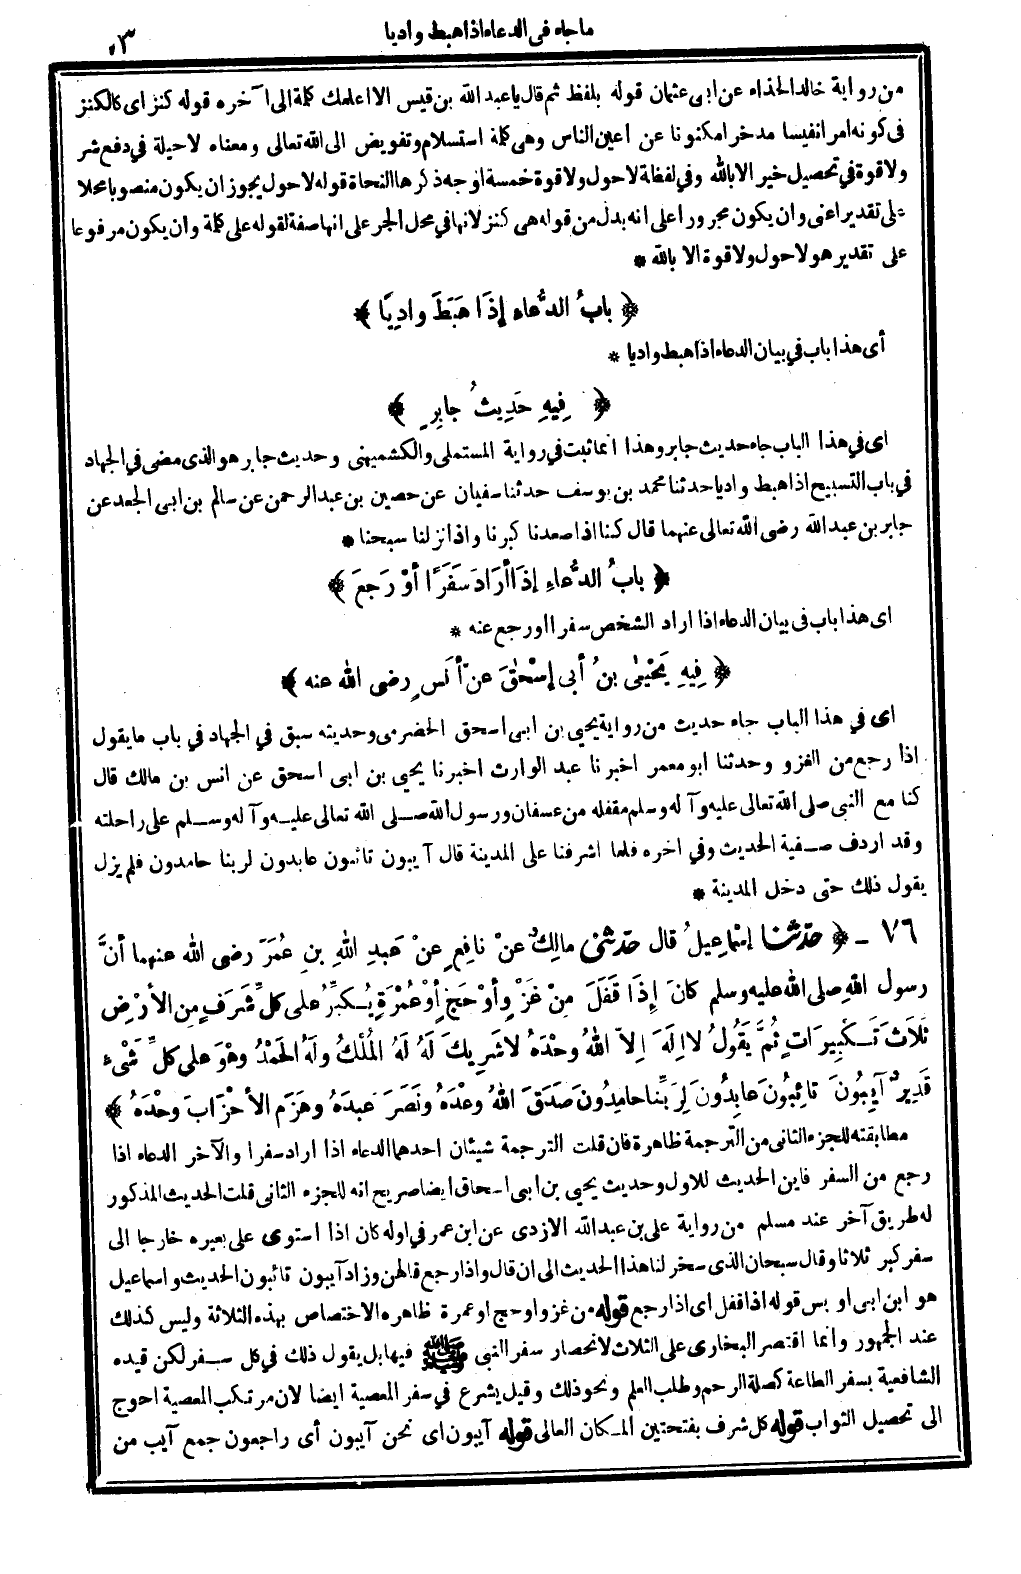 ما جاء في الدعاء اذا هبط واديا
٣
من رواية خالد الحذاء عن ابى عثمان قوله بلفظ ثم قال يا عبد الله بن قيس الا اعلمك كلمة الى آخره قوله كنز اى كالكنز
فى كونه امرا نفيسا مدخرا مكنونا عن اعين الناس وهى كلمة استسلام وتفويض الى الله تعالى ومعناه لا حيلة في دفع شر
ولا قوة في تحصيل خير الا بالله وفي لفظة لا حول ولا قوة خمسة اوجه ذكرها النحاة قوله لا حول يجوز ان يكون منصوبا محلا
على تقدير اعنى وان يكون مجرورا على انه بدل من قوله هى كنز لانها في محل الجر على انها صفة لقوله على كلمة وان يكون مرفوعا
على تقدير هو لا حول ولا قوة الا بالله *
﴿ بابُ الدُّعاءِ إذَا هَبَطَ وادِيًا ﴾
أى هذا باب في بيان الدعاء اذا هبط واديا *
﴿ فِيهِ حَدِيثُ جابِرٍ ﴾
اى في هذا الباب جاء حديث جابر وهذا انما ثبت في رواية المستملى والكشميهنى وحديث جابر هو الذى مضى في الجهاد
في باب التسبيح اذا هبط واديا حدثنا محمد بن يوسف حدثنا سفيان عن حصين بن عبد الرحمن عن سالم بن ابى الجعد عن
جابر بن عبد الله رضى الله تعالى عنهما قال كنا اذا صعدنا كبرنا واذا نزلنا سبحنا *
﴿ بابُ الدُّعاءِ إذَا أرَادَ سَفَرًا أوْ رَجَعَ ﴾
اى هذا باب فى بيان الدعاء اذا اراد الشخص سفرا او رجع عنه *
﴿ فِيهِ يَحْيىٰ بنُ أبى إسْحٰقَ عنْ أنَسٍ رضى الله عنه ﴾
اى في هذا الباب جاء حديث من رواية يحيى بن ابى اسحق الحضرمى وحديثه سبق في الجهاد في باب ما يقول
اذا رجع من الغزو وحدثنا ابو معمر اخبرنا عبد الوارث اخبرنا يحيى بن ابى اسحق عن انس بن مالك قال
كنا مع النبى صلى الله تعالى عليه وآله وسلم مقفله من عسفان ورسول الله صلى الله تعالى عليه وآله وسلم على راحلته
وقد اردف صفية الحديث وفي اخره فلما اشرفنا على المدينة قال آيبون تائبون عابدون لربنا حامدون فلم يزل
يقول ذلك حتى دخل المدينة *
٧٦ - ﴿ حَدَّثَنَا إسْمَاعِيلُ قال حَدَّثَنى مالِكٌ عنْ نافِعٍ عنْ عَبدِ اللهِ بنِ عُمَرَ رضى الله عنهما أنَّ
رسول اللهِ صلى الله عليه وسلم كانَ إذَا قَفَلَ مِنْ غَزْوٍ أوْ حَجٍّ أوْ عُمْرَةٍ يُكَبِّرُ على كلِّ شَرَفٍ مِن الأرْضِ
ثَلاثَ تَكْبِيرَاتٍ ثُمَّ يَقُولُ لا إلَهَ إلاّ اللهُ وحْدَهُ لا شَرِيكَ لَهُ لَهُ المُلْكُ ولَهُ الحَمْدُ وهْوَ على كلِّ شَىْءٍ
قَدِيرٌ آيِبُونَ تائِبُونَ عابِدُونَ لِرَبِّنا حامِدُونَ صَدَقَ اللهُ وعْدَهُ ونَصَرَ عَبدَهُ وهَزَم الأحْزَابَ وحْدَهُ ﴾
مطابقته للجزء الثانى من الترجمة ظاهرة فان قلت الترجمة شيئان احدهما الدعاء اذا اراد سفرا والآخر الدعاء اذا
رجع من السفر فاين الحديث للاول وحديث يحيى بن ابى اسحاق ايضا صريح انه للجزء الثانى قلت الحديث المذكور
له طريق آخر عند مسلم من رواية على بن عبد الله الازدى عن ابن عمر في اوله كان اذا استوى على بعيره خارجا الى
سفر كبر ثلاثا وقال سبحان الذى سخر لنا هذا الحديث الى ان قال واذا رجع قالهن وزاد آيبون تائبون الحديث واسماعيل
هو ابن ابى اويس قوله اذا قفل اى اذا رجع قوله من غزو او حج او عمرة ظاهره الاختصاص بهذه الثلاثة وليس كذلك
عند الجمهور وانما اقتصر البخارى على الثلاث لانحصار سفر النبى ﷺ فيها بل يقول ذلك في كل سفر لكن قيده
الشافعية بسفر الطاعة كصلة الرحم وطلب العلم ونحو ذلك وقيل يشرع في سفر المعصية ايضا لان مرتكب المعصية احوج
الى تحصيل الثواب قوله كل شرف بفتحتين المكان العالى قوله آيبون اى نحن آيبون أى راجعون جمع آيب من